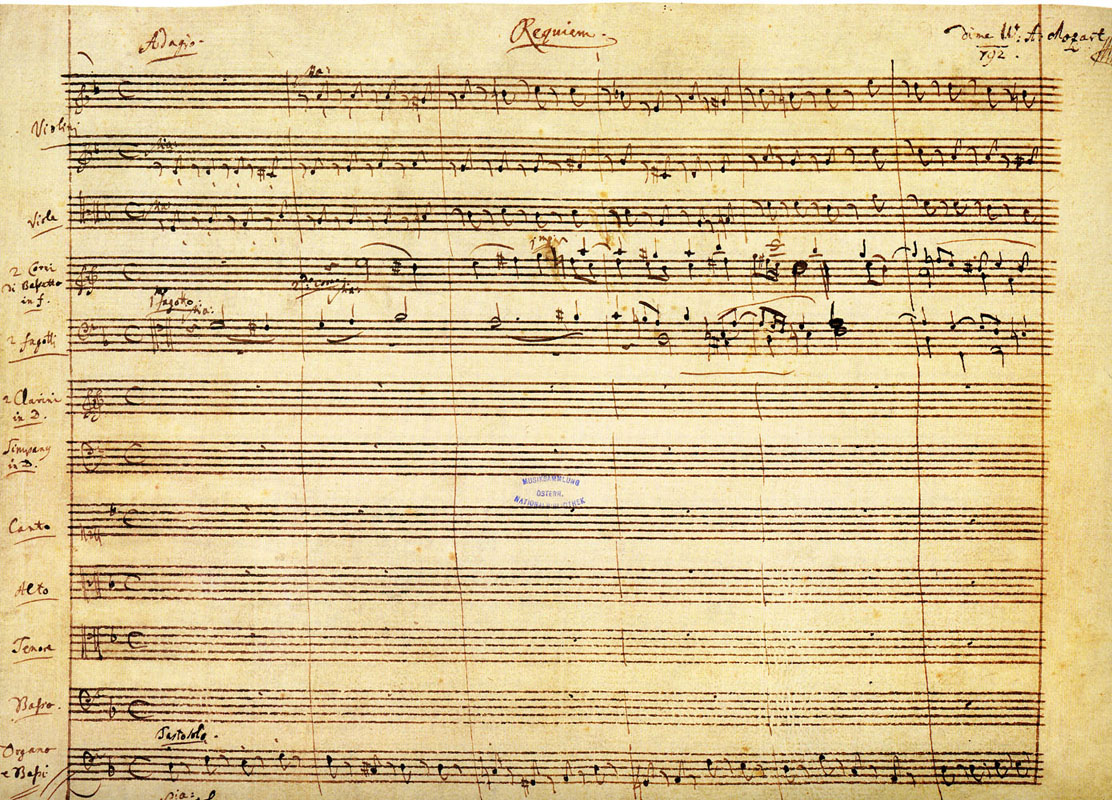 Requiem.
di me W: A: Mozart
Adagio.
792.
Violini
Viola
2 Corni
di Bassetto
in f.
1mo fagotto
2 fagotti
2 Clarini
in D.
Timpany
in D.
MUSIKSAMMLUNG
ÖSTERR.
NATIONALBIBLIOTHEK
Canto
Alto
Tenore
Basso.
Tasto solo.
Organo
e Bassi
pia: